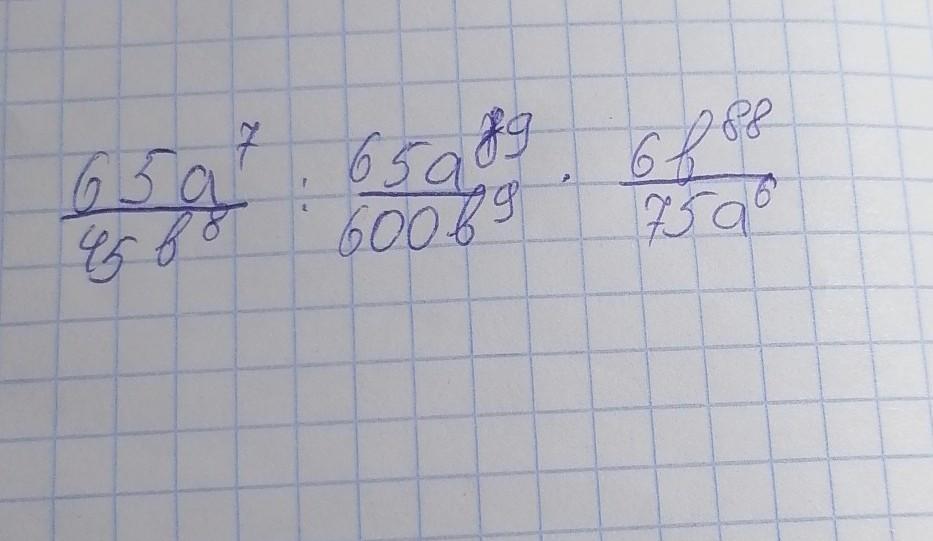 65a⁷/45b⁸ : 65a⁸⁹/600b⁹ · 6b⁸⁸/75a⁶